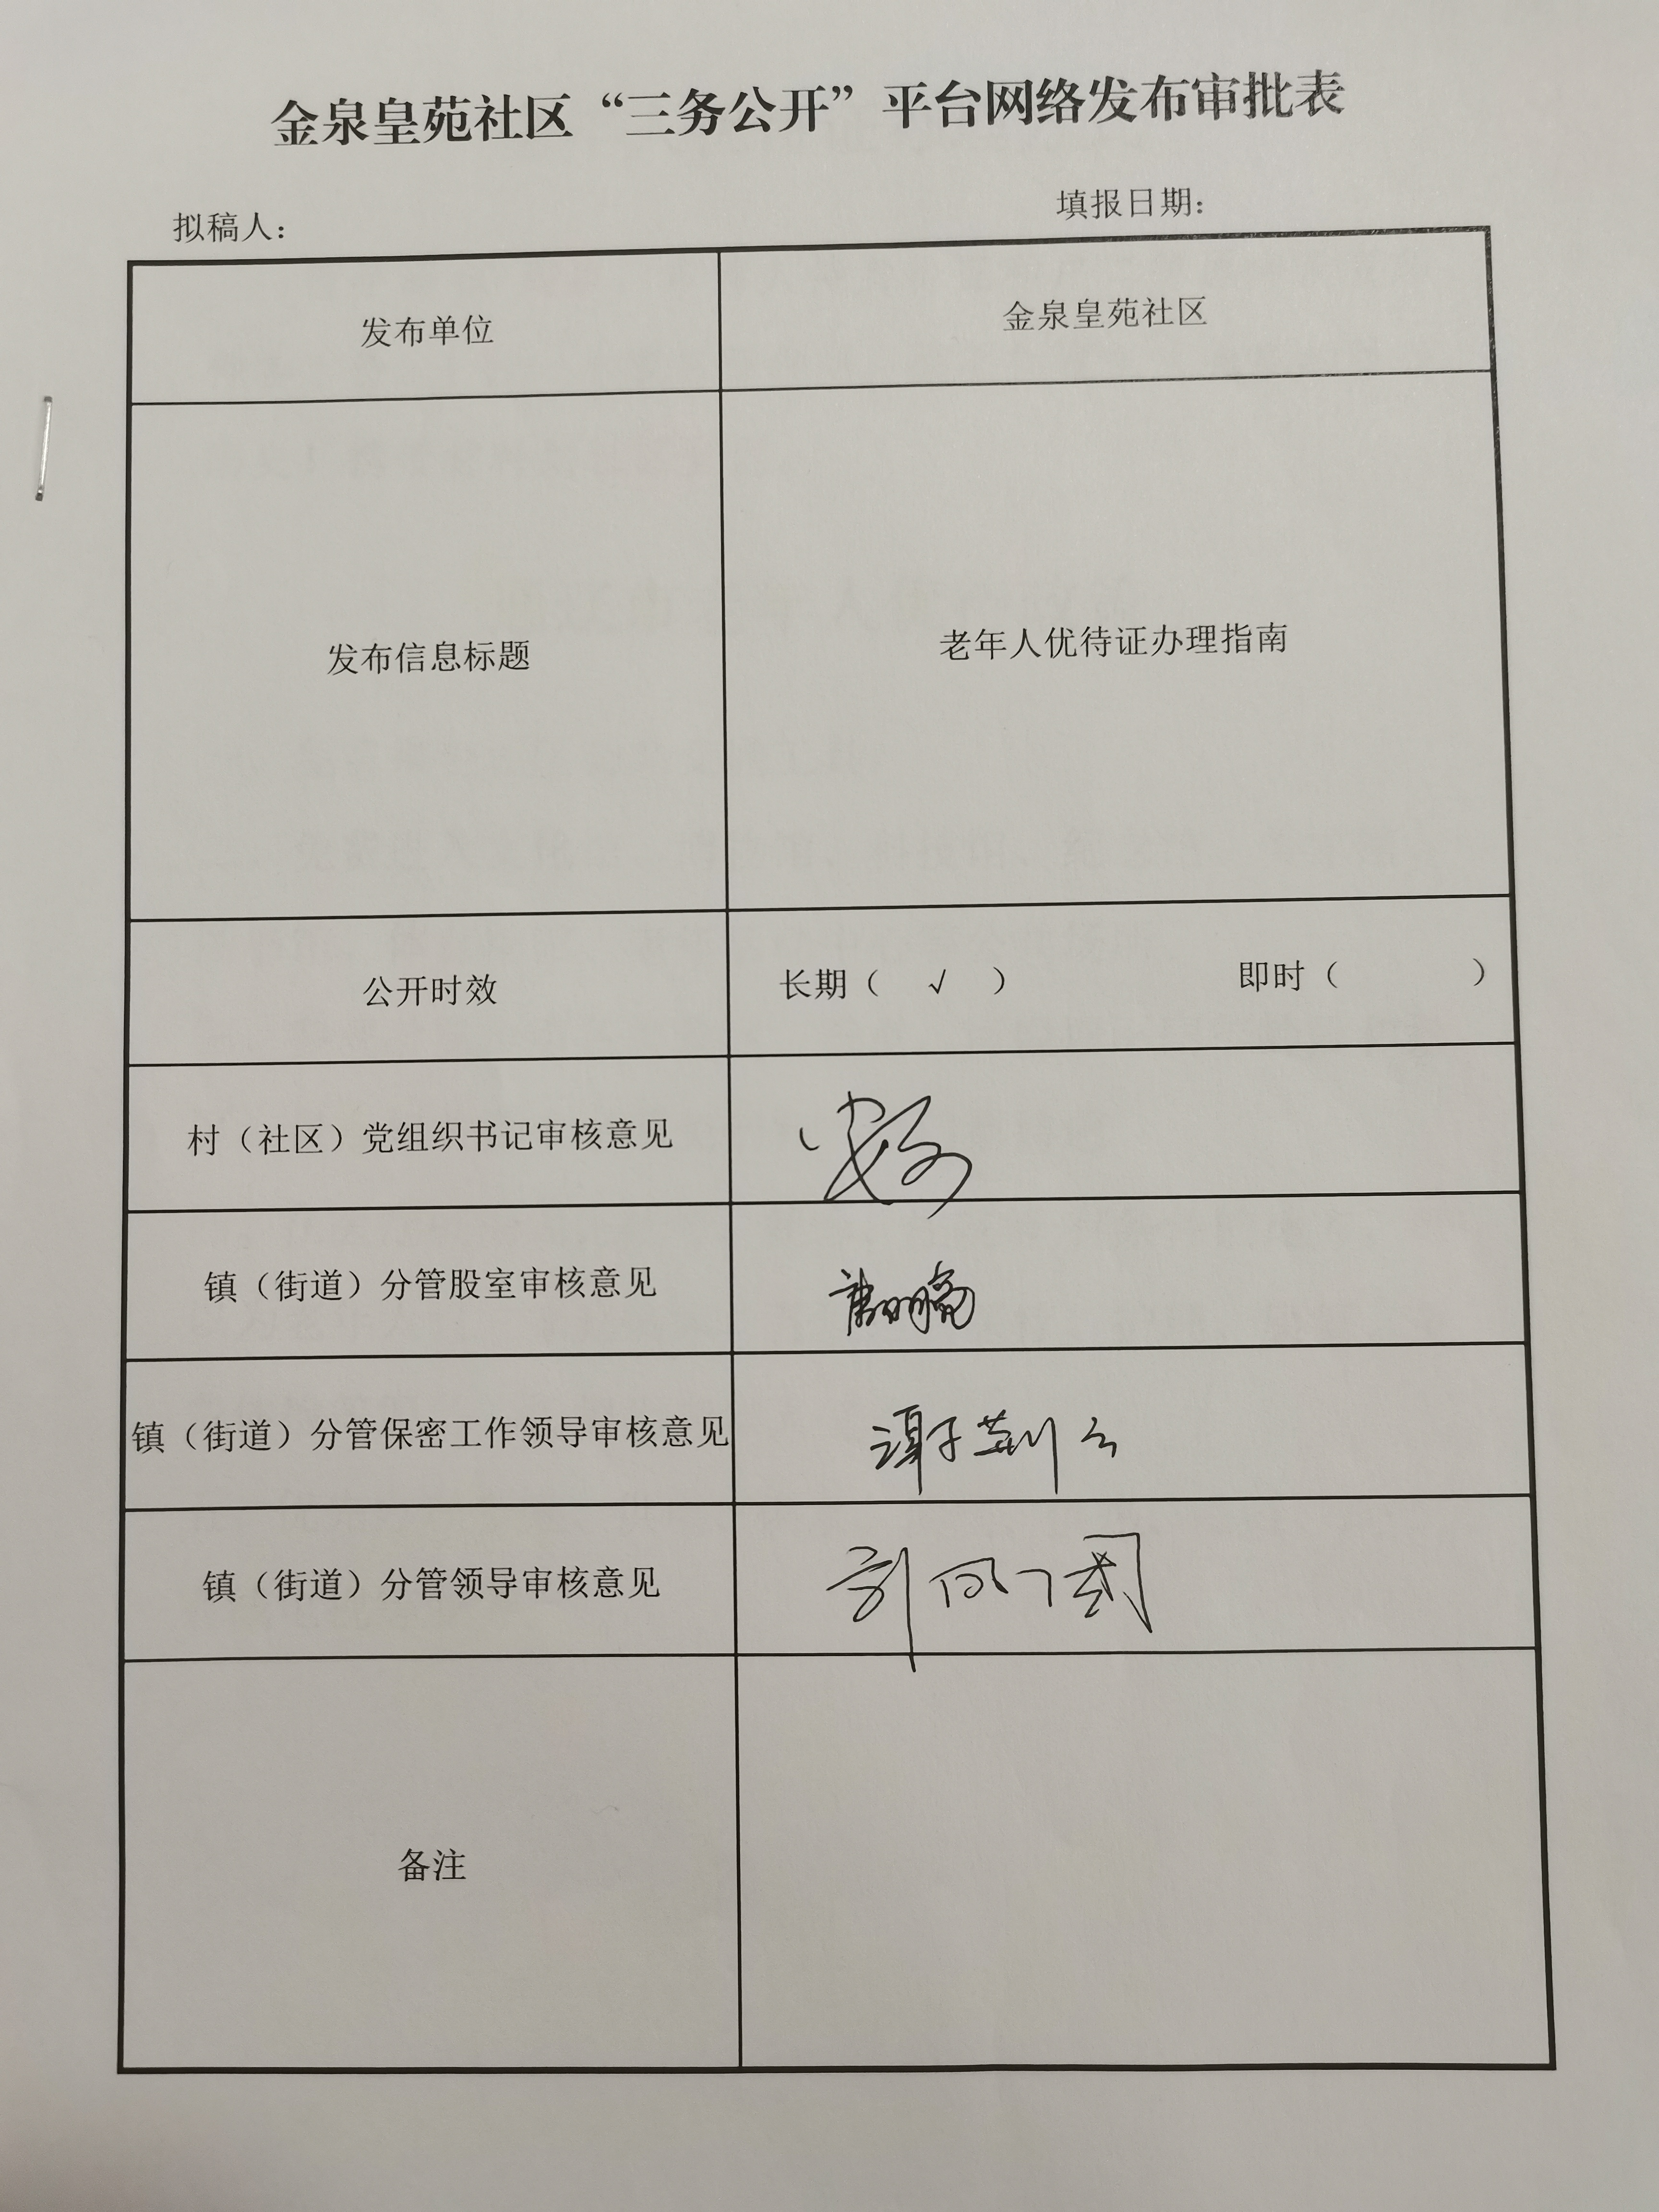 金泉皇苑社区“三务公开”平台网络发布审批表
拟稿人：
填报日期：
发布单位
金泉皇苑社区
发布信息标题
老年人优待证办理指南
公开时效
长期（ √ ） 即时（ ）
村（社区）党组织书记审核意见
镇（街道）分管股室审核意见
镇（街道）分管保密工作领导审核意见
镇（街道）分管领导审核意见
备注